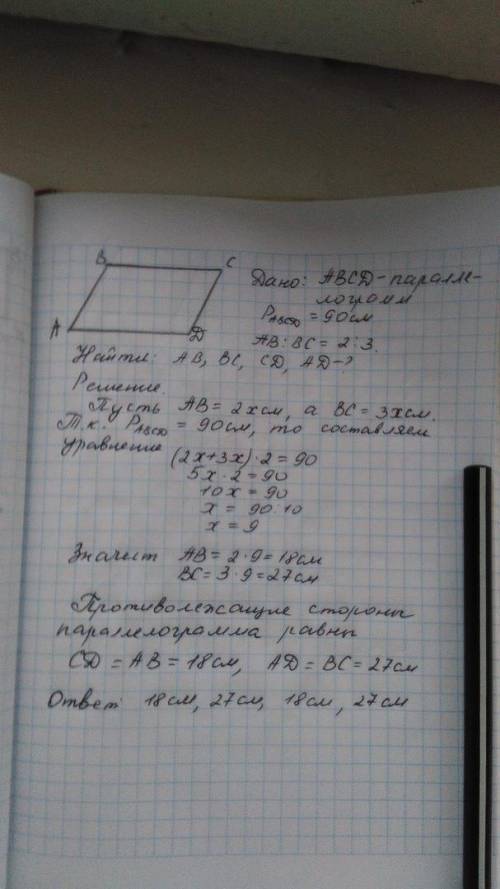 B
C
A
D
Дано: ABCD - паралле-
лограмм
P_ABCD = 90см
AB : BC = 2 : 3.
Найти: AB, BC, CD, AD - ?
Решение.
Пусть AB = 2x см, а BC = 3x см.
Т.к. P_ABCD = 90см, то составляем
уравнение
(2x+3x)·2=90
5x·2=90
10x = 90
x = 90:10
x = 9
Значит AB = 2·9=18см
BC = 3·9=27см
Противолежащие стороны
параллелограмма равны
CD = AB = 18см, AD = BC = 27см
Ответ: 18см, 27см, 18см, 27см